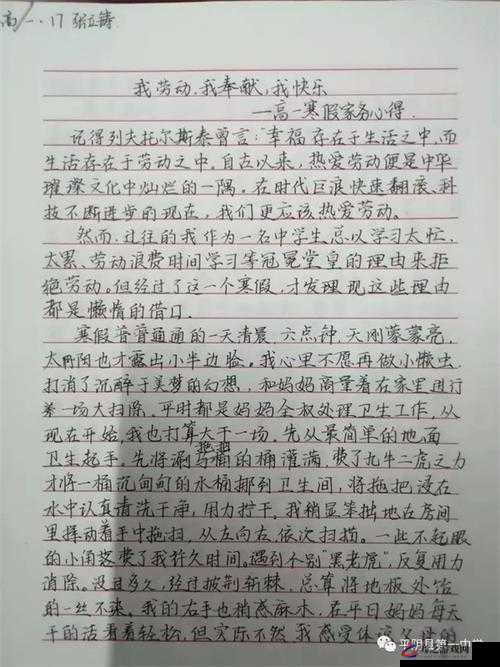 高一·17 张立铸
我劳动,我奉献,我快乐
—高一寒假家务心得.
记得列夫托尔斯泰曾言:"幸福存在于生活之中,而
生活存在于劳动之中。自古以来,热爱劳动便是中华
璀璨文化中灿烂的一隅。在时代巨浪快速翻滚、科
技不断进步的现在,我们更应该热爱劳动。
然而,过往的我作为一名中学生总以学习太忙、
太累、劳动浪费时间学习等冠冕堂皇的理由来拒
绝劳动。但经过了这一个寒假,才发现现这些理由
都是懒惰的借口.
寒假普普通通的一天清晨,六点钟,天刚蒙蒙亮,
太阳也才露出小半边脸。我心里不愿再做小懒虫,
打消了沉醉于美梦的幻想,和妈妈商量着在家里进行
一场大扫除。平时都是妈妈全权处理卫生工作,从
现在开始,我也打算大干一场。先从最简单的地面
卫生起手。先将涮拖把的桶灌满,费了九牛二虎之力
才将一桶沉甸甸的水桶挪到卫生间,将拖把浸在
水中认真清洗干净,用力拧干。我稍显笨拙地在房间
里挥动着手中拖把,从左向右,依次扫描。一些不起眼
的小角落费了我许久时间。遇到个别"黑老虎",反复用力
消除。没过多久,经过披荆斩棘,总算将地板处治
的一丝不染。我的右手也稍感麻木,在平日妈妈每天
干的活看着轻松,但实际不然,我感受体
平阴县第一中学
游戏网